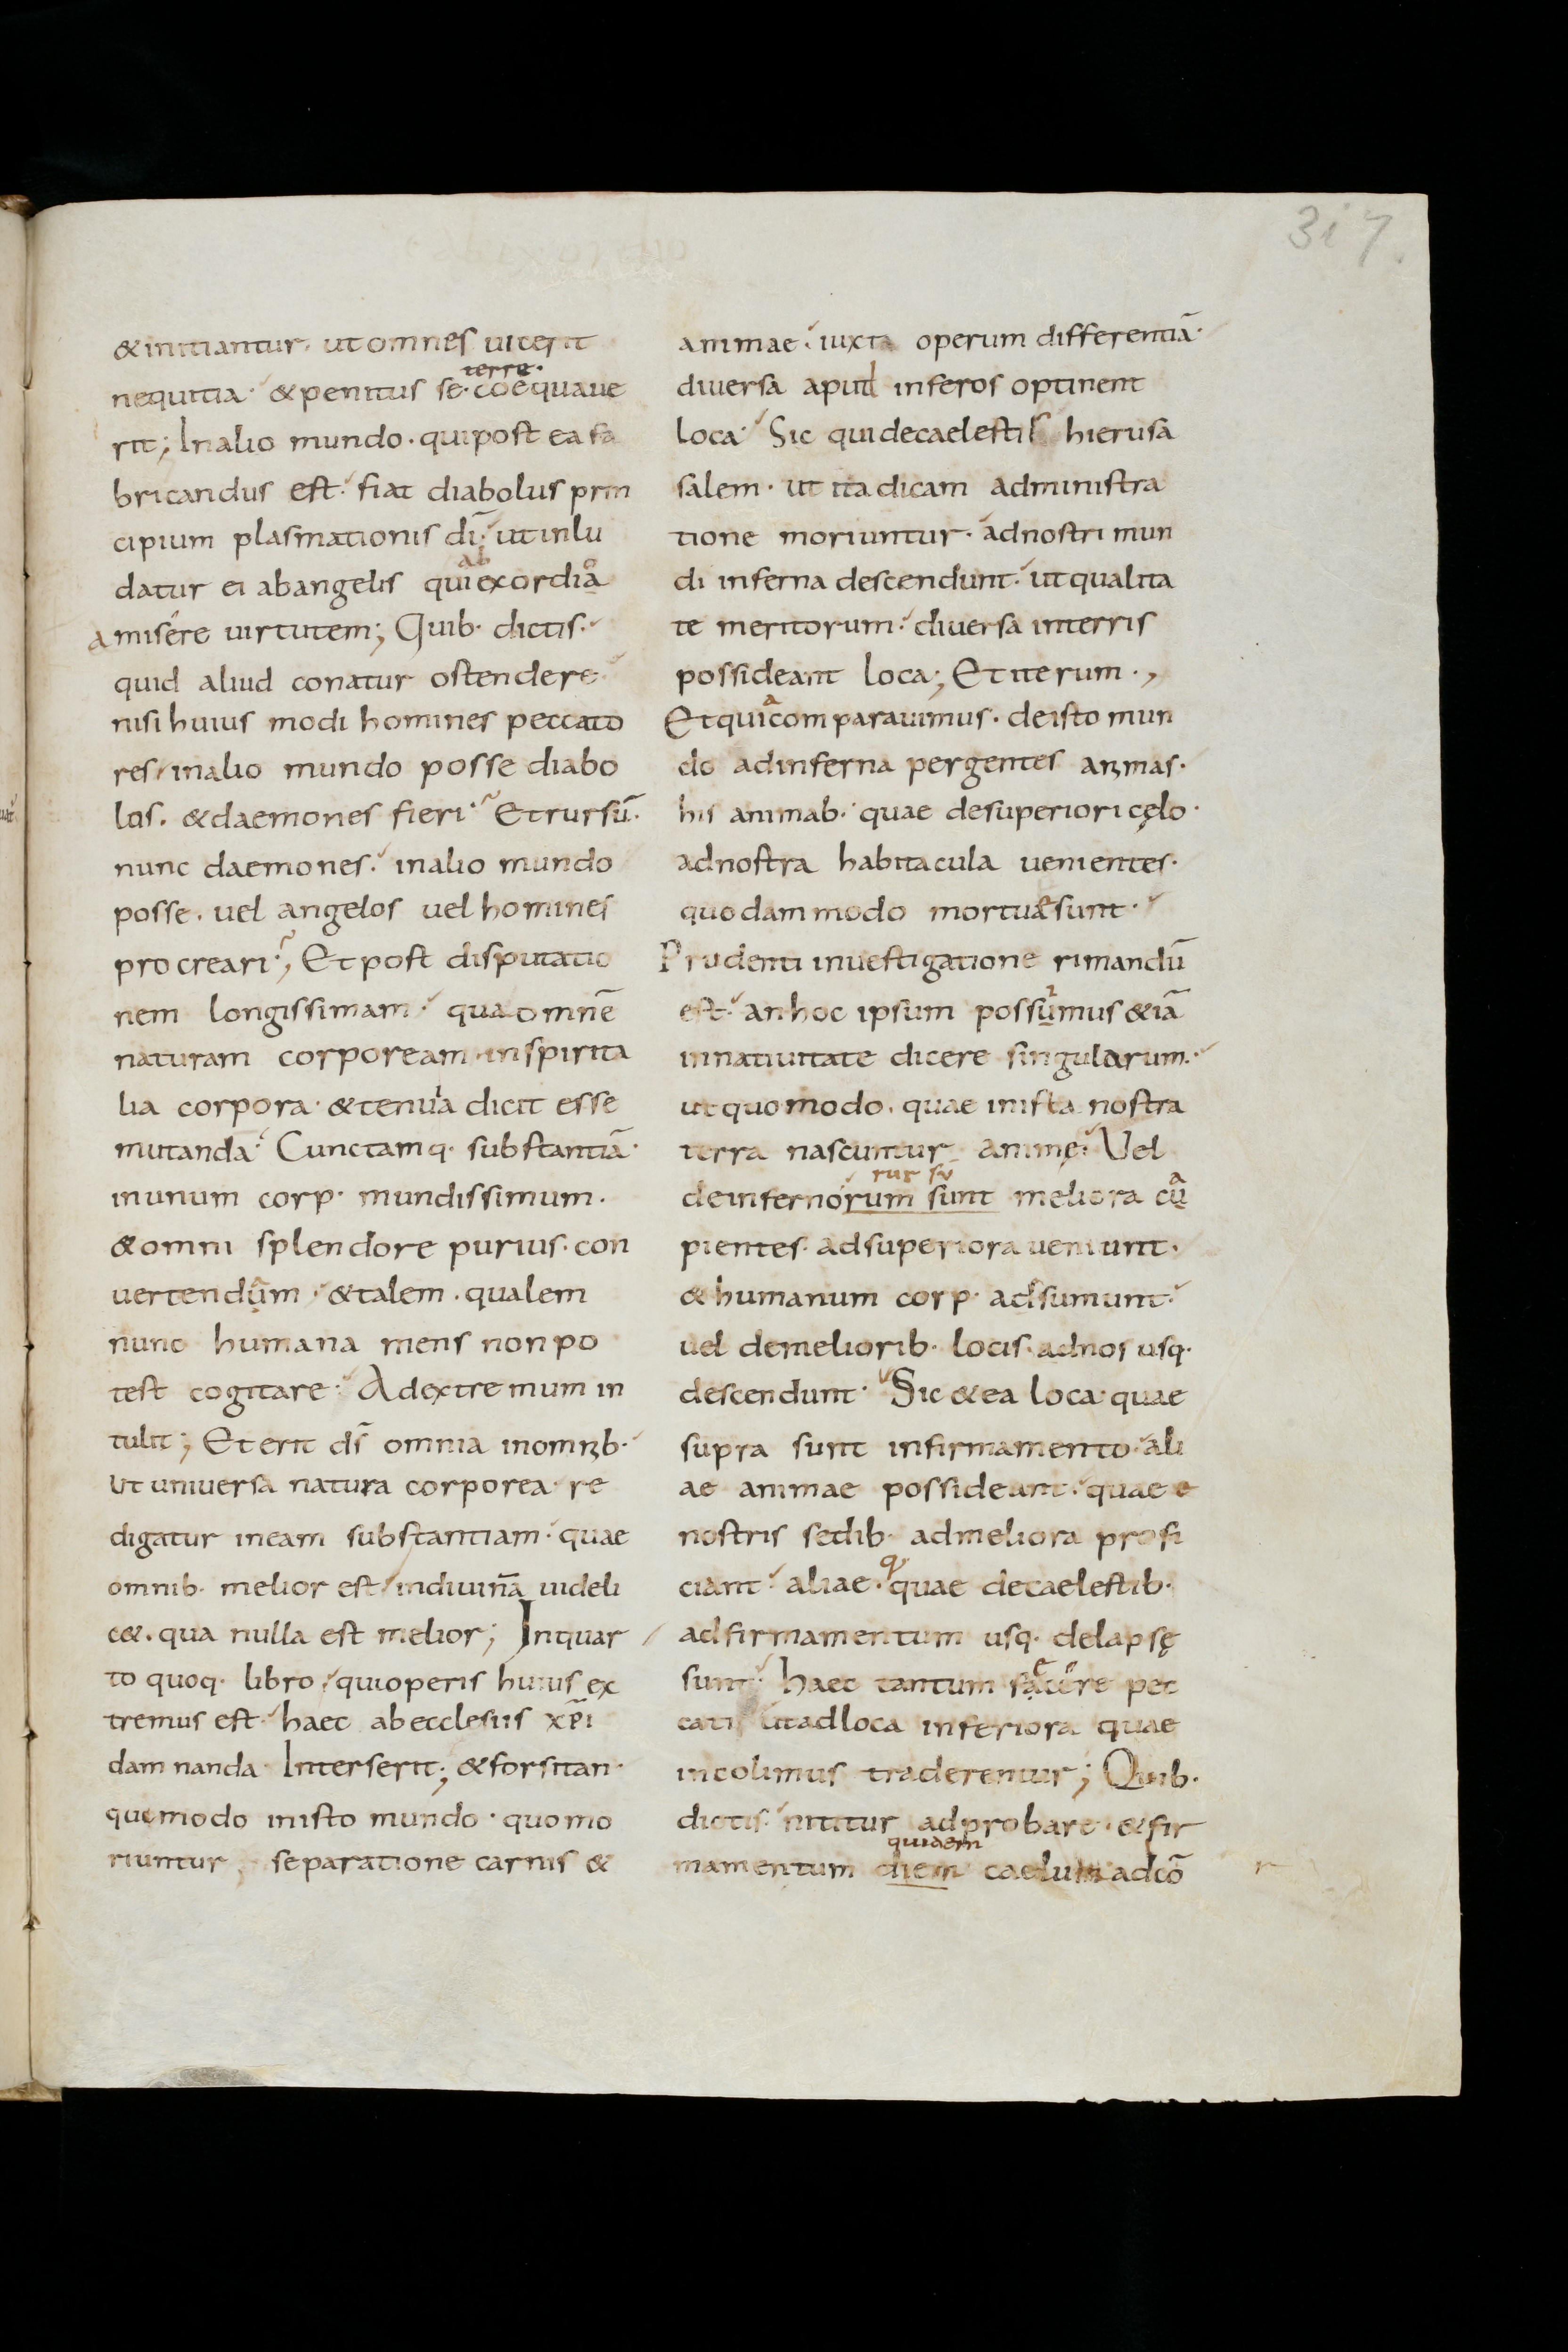 317.
& initiantur. ut omnes uicerit
terrę.
nequitia. & penitus se. coequaue
rit; In alio mundo. qui post ea fa
bricandus est. fiat diabolus prin
cipium plasmationis dī. ut inlu
ab
datur ei ab angelis qui exordia
amisere uirtutem; Quib. dictis.
quid aliud conatur ostendere
nisi huius modi homines peccato
res in alio mundo posse diabo
los. & daemones fieri. Et rursū.
nunc daemones. in alio mundo
posse. uel angelos uel homines
procreari; Et post disputatio
nem longissimam. qua omnē
naturam corpoream in spirita
lia corpora. & tenuia dicit esse
mutanda. Cunctamq. substantiā.
in unum corp. mundissimum.
& omni splendore purius. con
uertendum. & talem. qualem
nunc humana mens non po
test cogitare. Ad extremum in
tulit; Et erit ds̄ omnia in omnib.
ut uniuersa natura corporea. re
digatur in eam substantiam. quae
omnib. melior est in diuinā uideli
c&. qua nulla est melior; In quar
to quoq. libro. qui operis huius ex
tremus est. haec ab ecclesiis xp̄i
damnanda. Interserit; & forsitan.
quomodo in isto mundo. quo mo
riuntur, separatione carnis &
animae. iuxta operum differentiā.
diuersa apud inferos optinent
loca. Sic qui de caelestis hierusa
salem. ut ita dicam administra
tione moriuntur. ad nostri mun
di inferna descendunt. ut qualita
te meritorum. diuersa in terris
possideant loca; Et iterum.,
a
Et qui comparauimus. de isto mun
do ad inferna pergentes animas.
his animab. quae de superiori cęlo.
ad nostra habitacula uenientes.
quodam modo mortuae sunt.
Prudenti inuestigatione rimandū
est. an hoc ipsum possumus & iā
in natiuitate dicere singularum.
ut quomodo. quae in ista nostra
terra nascuntur animę. Uel
rur sū
de inferno rum sunt meliora cu
pientes. ad superiora ueniunt.
& humanum corp. adsumunt.
uel de meliorib. locis. ad nos usq.
descendunt. Sic & ea loca. quae
supra sunt in firmamento. ali
ae animae possideant. quae e
nostris sedib. ad meliora profi
q.
ciant. aliae. quae de caelestib.
ad firmamentum usq. delapsę
sunt. haec tantum facere pec
cati. ut ad loca inferiora quae
incolimus traderentur; Quib.
dictis. nititur adprobare. & fir
quidem
mamentum diem caelum ad cō
r